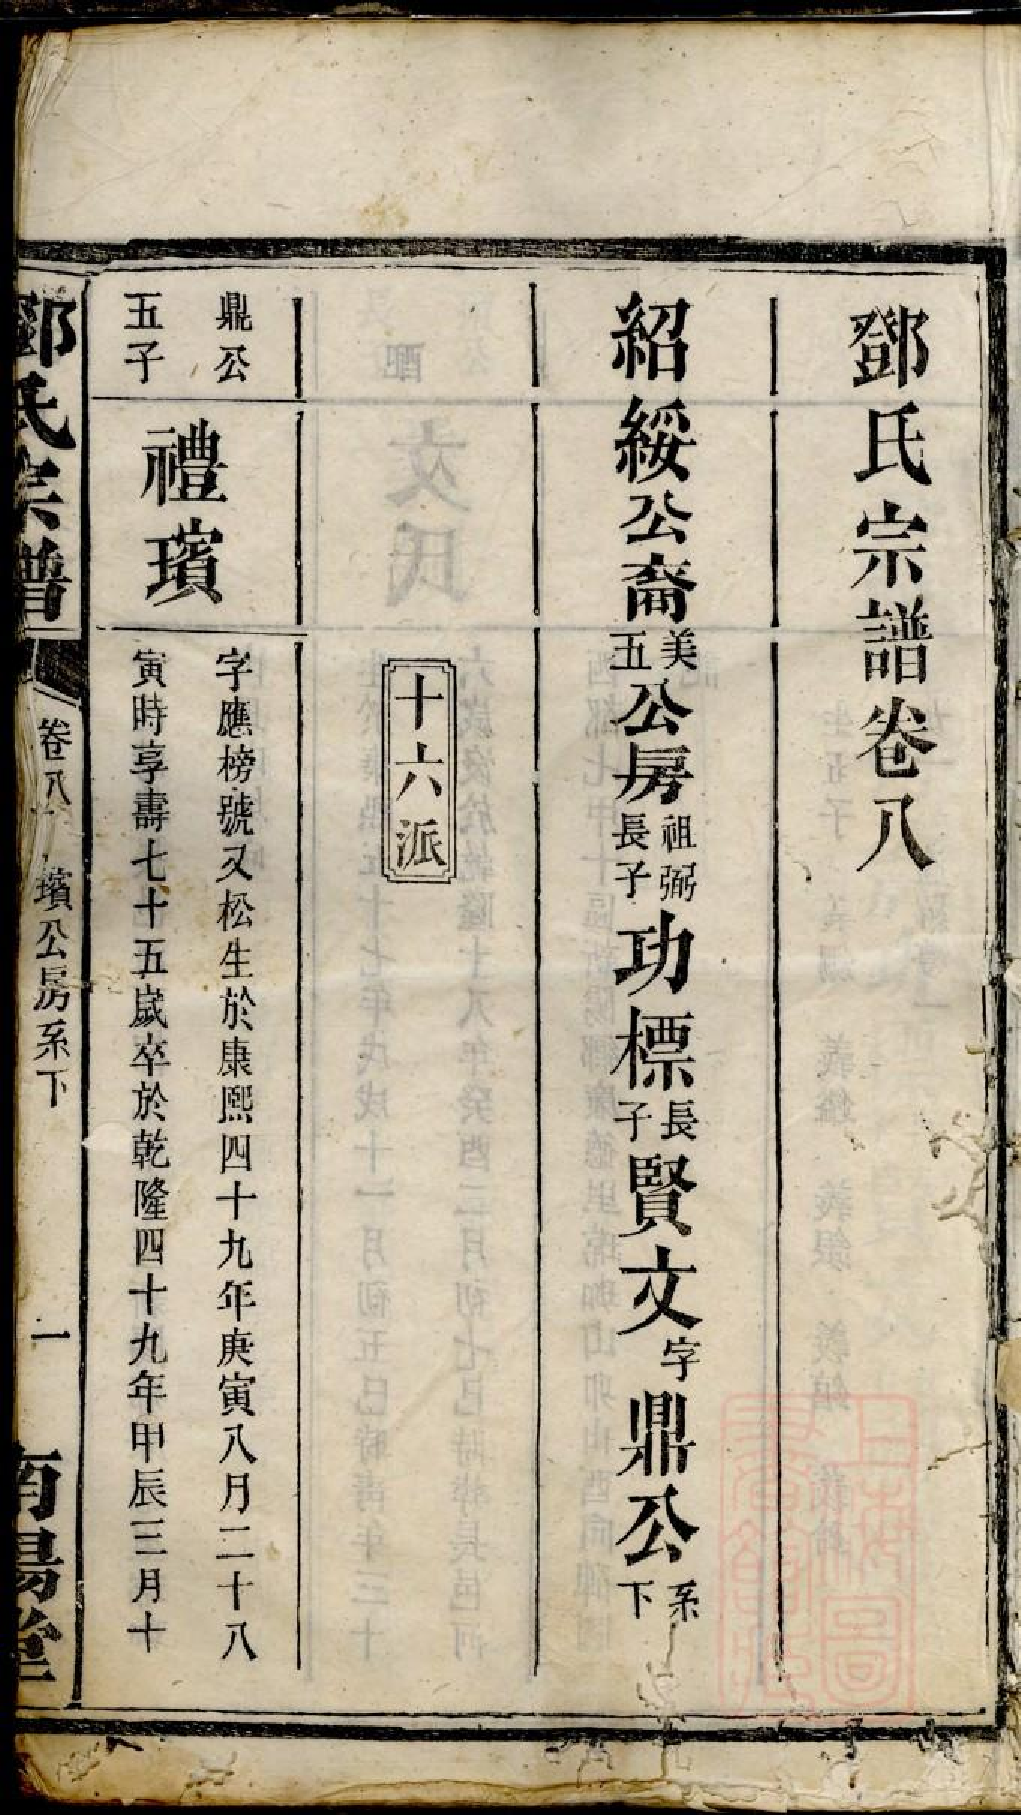 鄧氏宗譜卷八
紹綏公裔美五公房祖弼長子功標長子賢文字鼎公系下
十六派
鼎公
五子
禮璸
字應榜號又松生於康熙四十九年庚寅八月二十八
寅時享壽七十五歲卒於乾隆四十九年甲辰三月十
鄧氏宗譜
卷八
璸公房系下
一
南陽堂